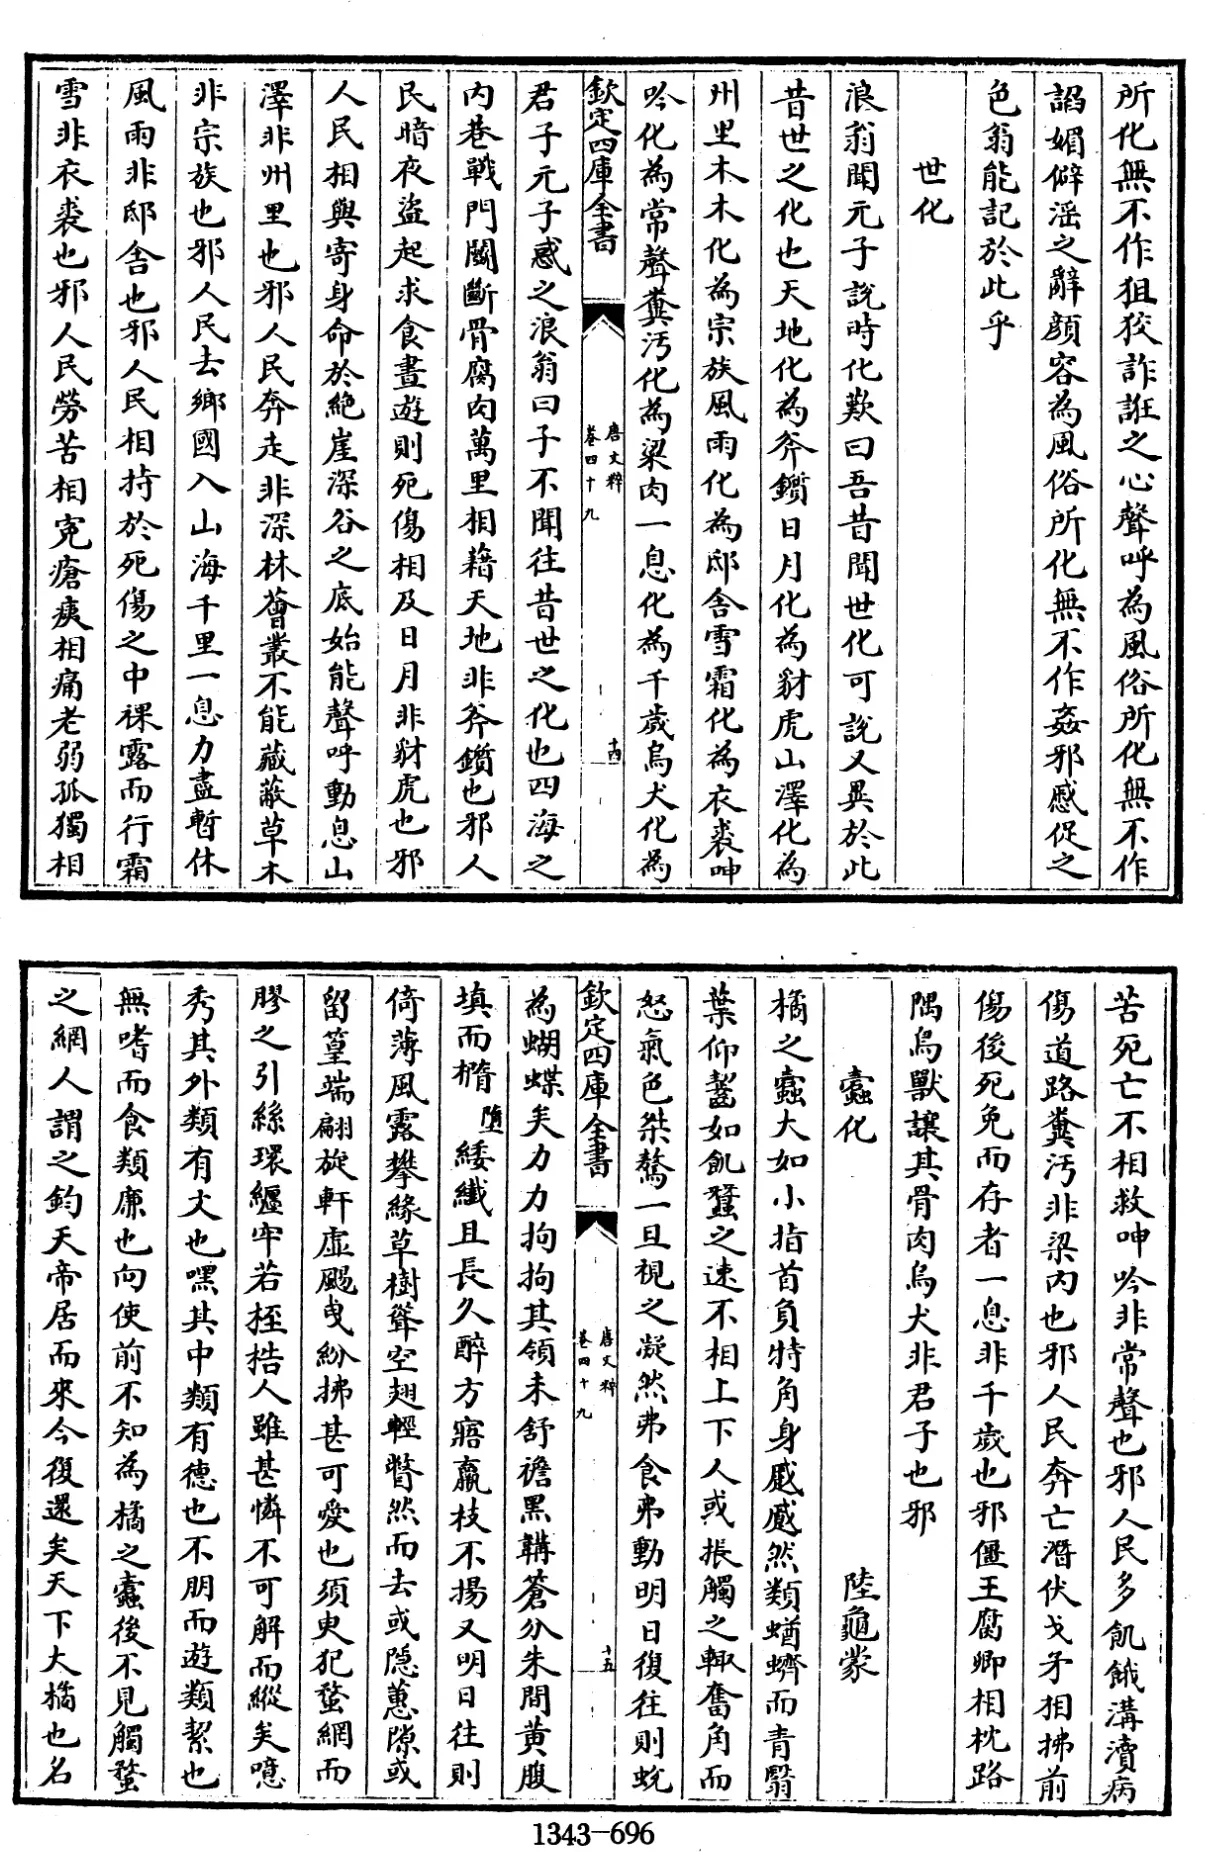 所化無不作狙狡詐誑之心聲呼為風俗所化無不作
謟媚僻淫之辭顔容為風俗所化無不作姦邪慼促之
色翁能記於此乎
世化
浪翁聞元子說時化歎曰吾昔聞世化可說又異於此
昔世之化也天地化為斧鑕日月化為豺虎山澤化為
州里木木化為宗族風雨化為邸舍雪霜化為衣裘呻
吟化為常聲糞汚化為粱肉一息化為千歲烏犬化為
欽定四庫全書
唐文粹
卷四十九
十四
君子元子惑之浪翁曰子不聞往昔世之化也四海之
内巷戰門鬭斷骨腐肉萬里相藉天地非斧鑕也邪人
民暗夜盜起求食晝遊則死傷相及日月非豺虎也邪
人民相與寄身命於絶崖深谷之底始能聲呼動息山
澤非州里也邪人民奔走非深林薈叢不能藏蔽草木
非宗族也邪人民去鄉國入山海千里一息力盡暫休
風雨非邸舍也邪人民相持於死傷之中裸露而行霜
雪非衣裘也邪人民勞苦相寃瘡痍相痛老弱孤獨相
苦死亡不相救呻吟非常聲也邪人民多飢餓溝瀆病
傷道路糞汚非粱肉也邪人民奔亡潛伏戈矛相拂前
傷後死免而存者一息非千歲也邪僵王腐卿相枕路
隅鳥獸讓其骨肉烏犬非君子也邪
蠧化 陸龜蒙
橘之蠧大如小指首負特角身蹙蹙然類蝤蠐而青翳
葉仰齧如飢蠶之速不相上下人或振觸之輒奮角而
怒氣色桀驁一旦視之凝然弗食弗動明日復往則蛻
欽定四庫全書
唐文粹
卷四十九
十五
為蝴蝶矣力力拘拘其領未舒襜黑韝蒼分朱間黄腹
填而橢墮緌纖且長久醉方寤羸枝不揚又明日往則
倚薄風露攀緣草樹聳空翅輕瞥然而去或隠蕙隙或
留篁端翩旋軒虚颺曳紛拂甚可愛也須臾犯蝥網而
膠之引絲環纒牢若桎梏人雖甚憐不可解而縱矣噫
秀其外類有文也嘿其中類有德也不朋而遊類絜也
無嗜而食類廉也向使前不知為橘之蠧後不見觸蝥
之網人謂之鈞天帝居而來今復還矣天下大橘也名
1343-696